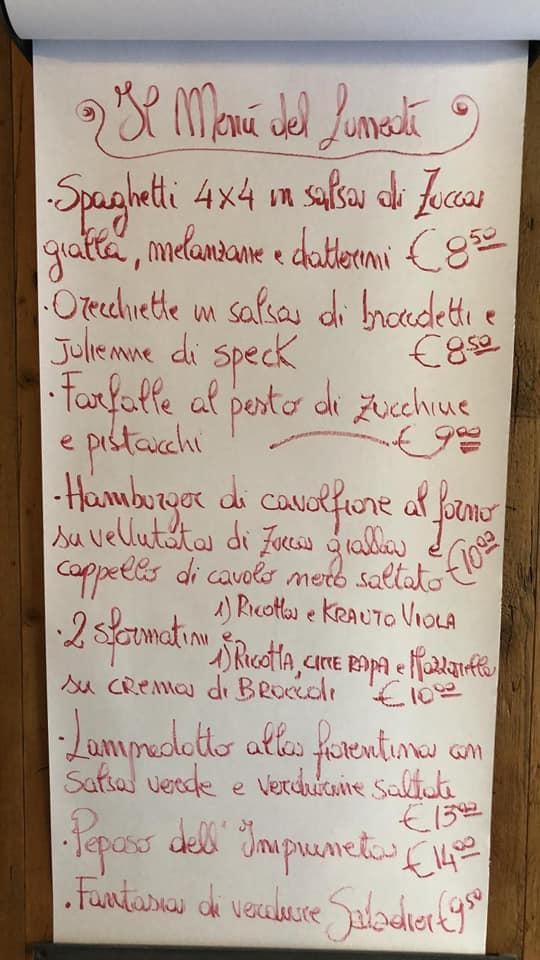 Il Menú del Lunedí
• Spaghetti 4x4 in salsa di Zucca
gialla, melanzane e datterini € 8,50
• Orecchiette in salsa di broccoletti e
Julienne di speck € 8,50
• Farfalle al pesto di zucchine
e pistacchi € 9,00
• Hamburger di cavolfiore al forno
su vellutata di zucca gialla e €10,00
cappello di cavolo nero saltato
1) Ricotta e KRAUTO VIOLA
• 2 sformatini e
1) RICOTTA, CIME RAPA e Mozzarella
su CREMA di BROCCOLI € 10,00
• Lampredotto alla fiorentina con
Salsa verde e verdurine saltate
€ 13,00
• Peposo dell'Impruneta € 14,00
• Fantasia di verdure Saladior €9,50